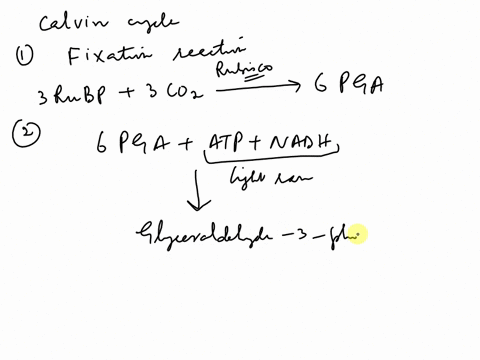 Calvin cycle
① Fixation reaction
Rubisco
3 RuBP + 3 CO2 → 6 PGA
② 6 PGA + ATP + NADH
light
Glyceraldehyde-3-ph